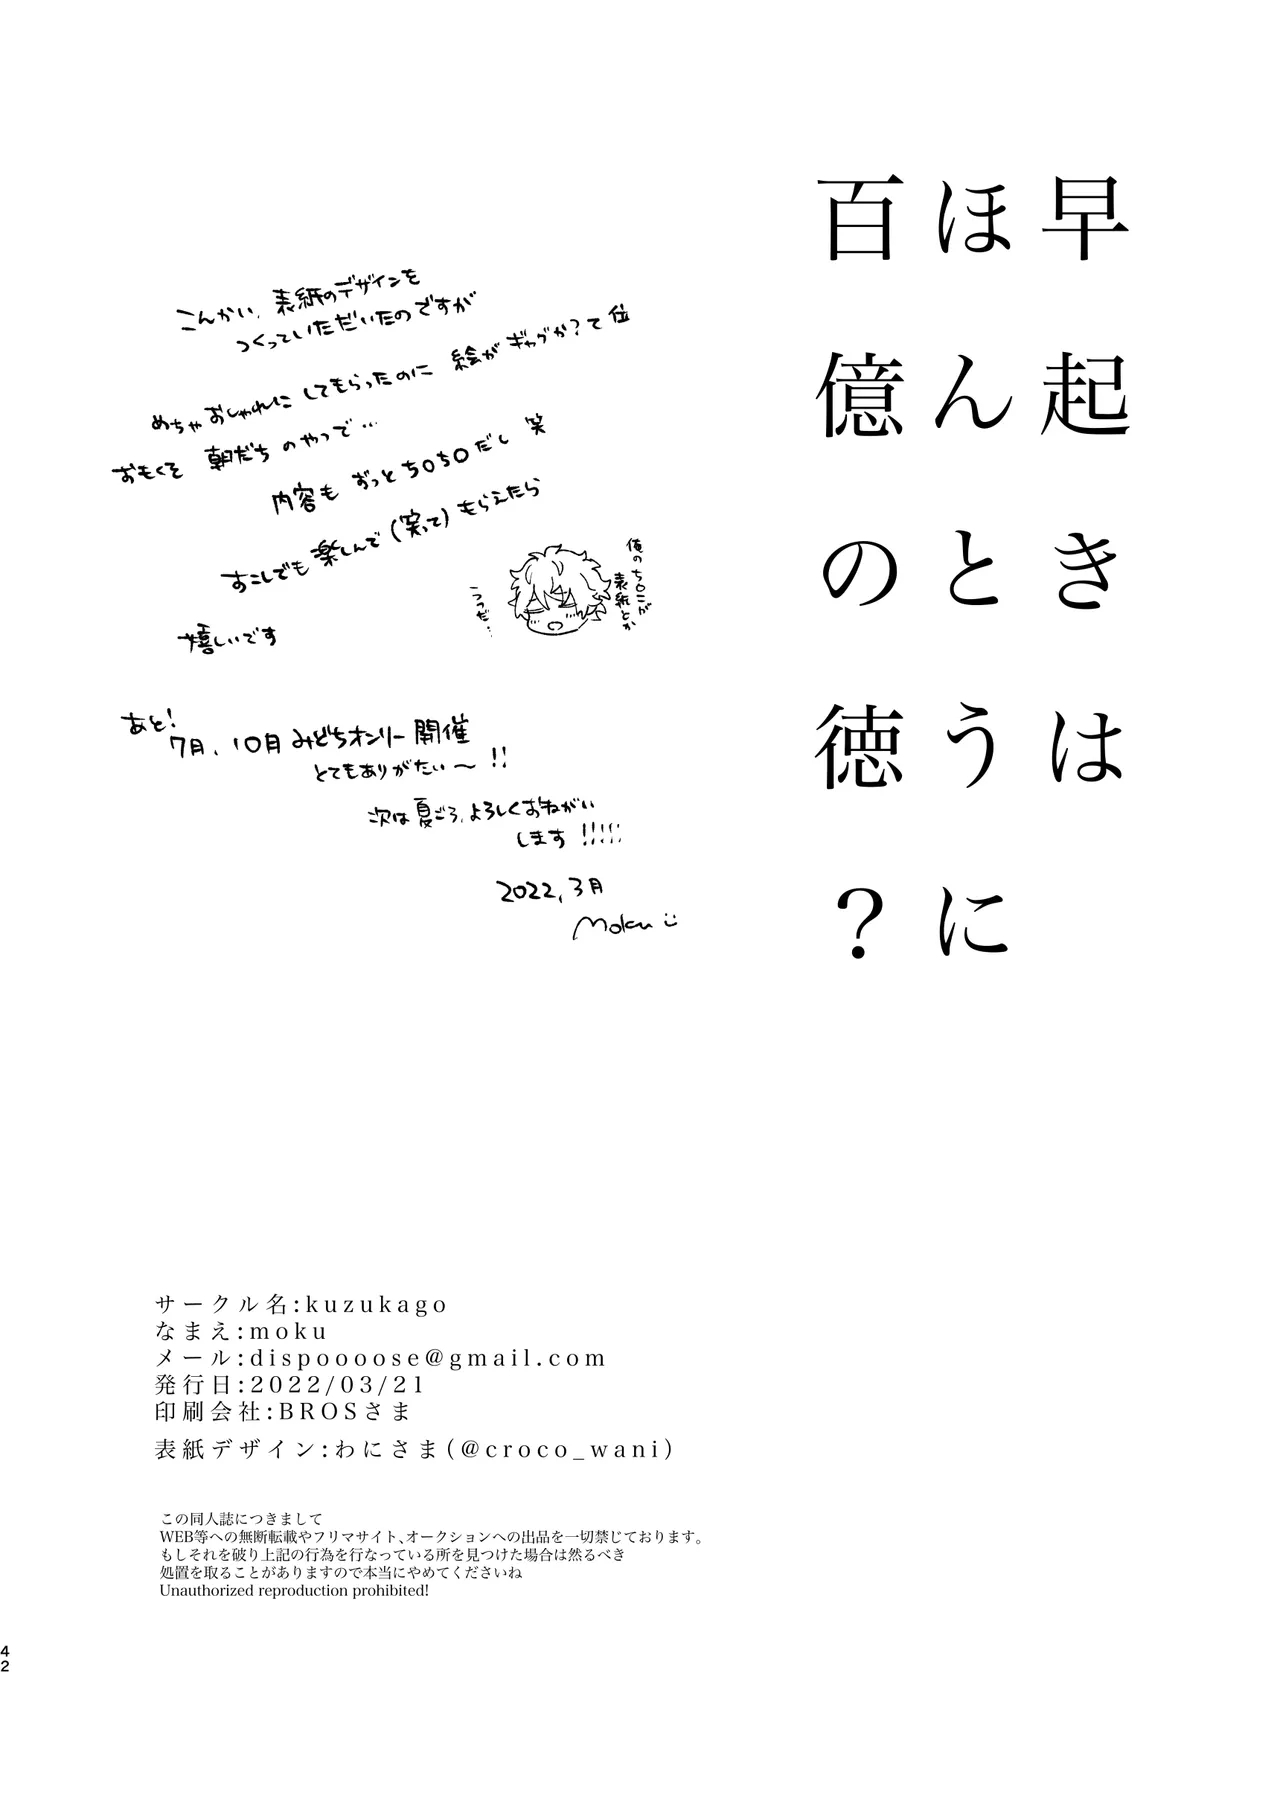 早起きは
ほんとうに
百億の徳？
こんかい、表紙のデザインを
つくっていただいたのですが
めちゃおしゃれにしてもらったのに 絵がギャグか？て位
おもくそ 朝だち のやつで…
内容も ずっとち〇ち〇だし 笑
すこしでも楽しんで(笑って)もらえたら
嬉しいです
俺のち〇こが
表紙とか
うつだ…
あと！
7月、10月 みどちオンリー 開催
とてもありがたい〜!!
次は夏ごろ、よろしくおねがい
します!!!!!
2022、3月
moku
サークル名:kuzukago
なまえ:moku
メール:dispoooose@gmail.com
発行日:2022/03/21
印刷会社:BROSさま
表紙デザイン:わにさま(@croco_wani)
この同人誌につきまして
WEB等への無断転載やフリマサイト、オークションへの出品を一切禁じております。
もしそれを破り上記の行為を行なっている所を見つけた場合は然るべき
処置を取ることがありますので本当にやめてくださいね
Unauthorized reproduction prohibited!
42